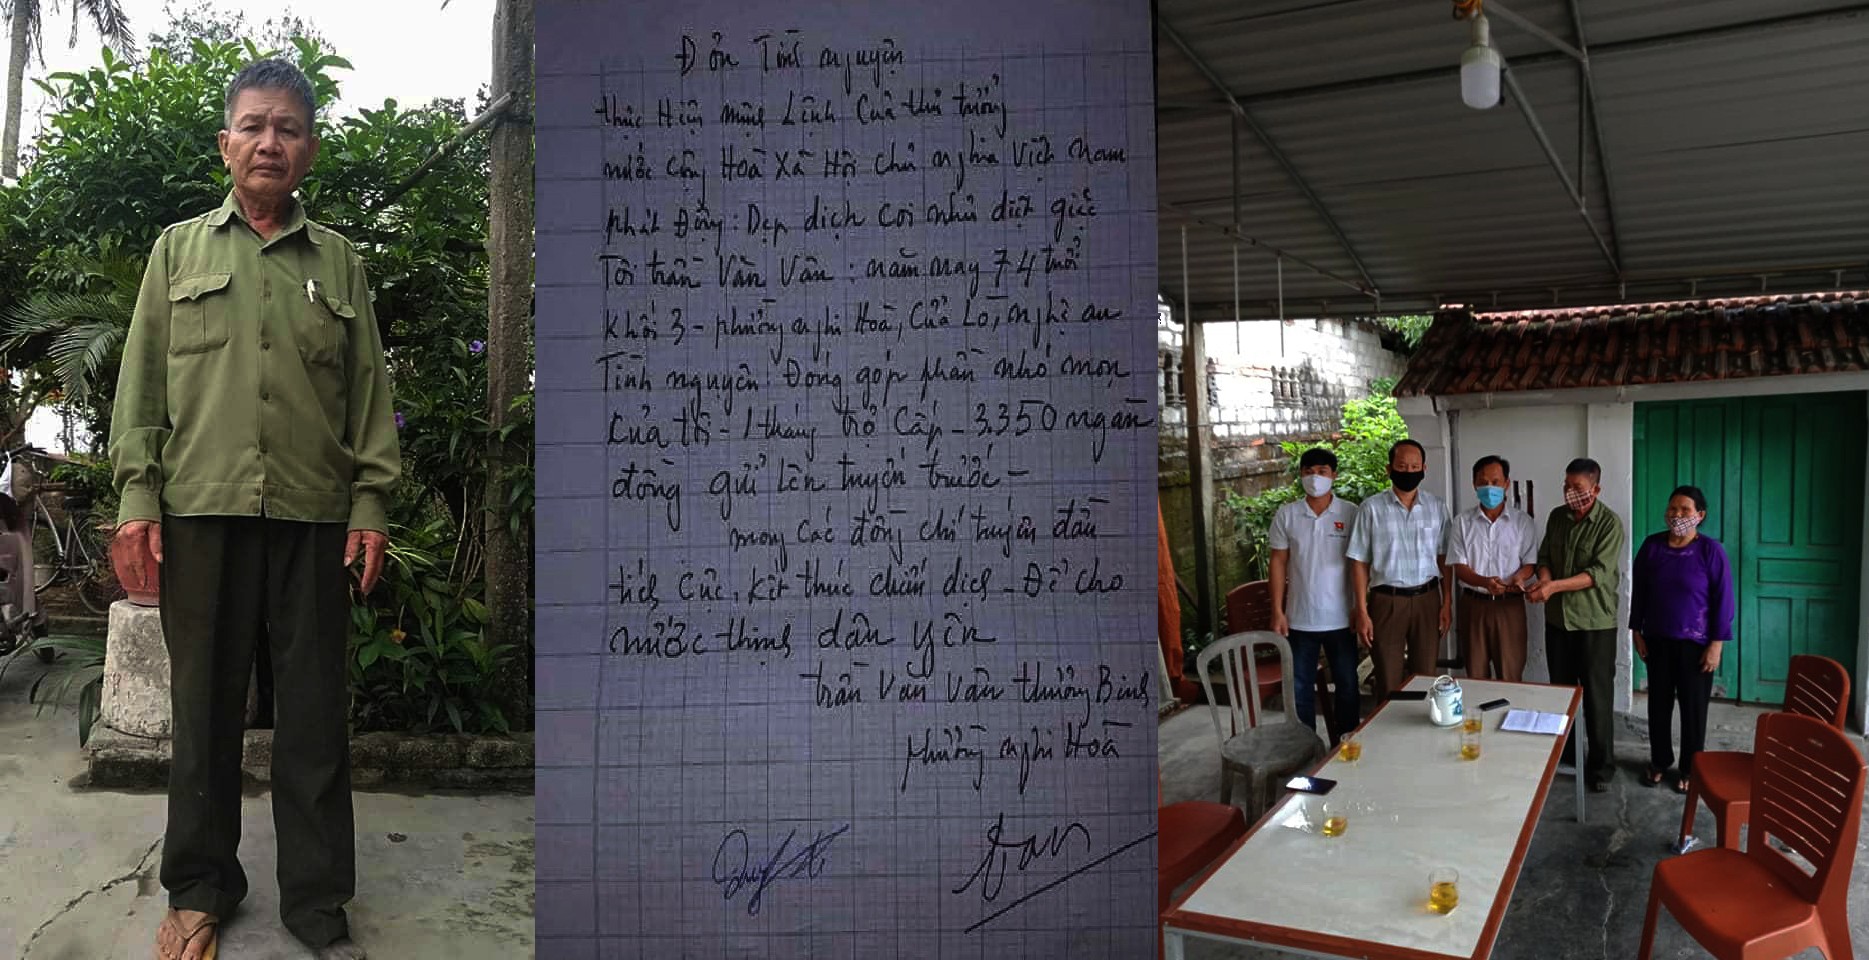 Đơn Tình nguyện
thực Hiện mệnh Lệnh Của thủ tướng
nước cộng Hoà Xã Hội chủ nghĩa Việt nam
phát Động: Dẹp dịch coi như diệt giặc
Tôi trần Văn Vân: năm nay 74 tuổi
khối 3 - phường nghi Hoà, Cửa Lò, nghệ an
Tình nguyện: Đóng góp phần nhỏ mọn
của tôi - 1 tháng trợ Cấp - 3.350 ngàn
đồng gửi lên tuyến trước -
mong các đồng chí tuyến đầu
tích cực, kết thúc chiến dịch - Để cho
nước thịnh dân yên
trần Văn Vân thương Binh
phường nghi Hoà